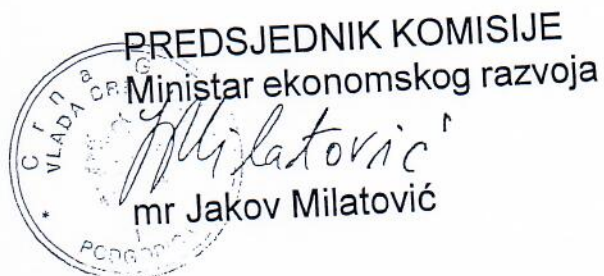 PREDSJEDNIK KOMISIJE
Ministar ekonomskog razvoja
Milatović
mr Jakov Milatović
Crna G
VLADA CR
PODGORI